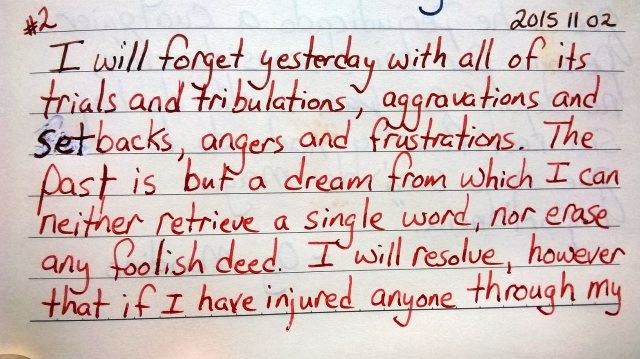 #2 2015 11 02
I will forget yesterday with all of its
trials and tribulations, aggravations and
setbacks, angers and frustrations. The
past is but a dream from which I can
neither retrieve a single word, nor erase
any foolish deed. I will resolve, however
that if I have injured anyone through my